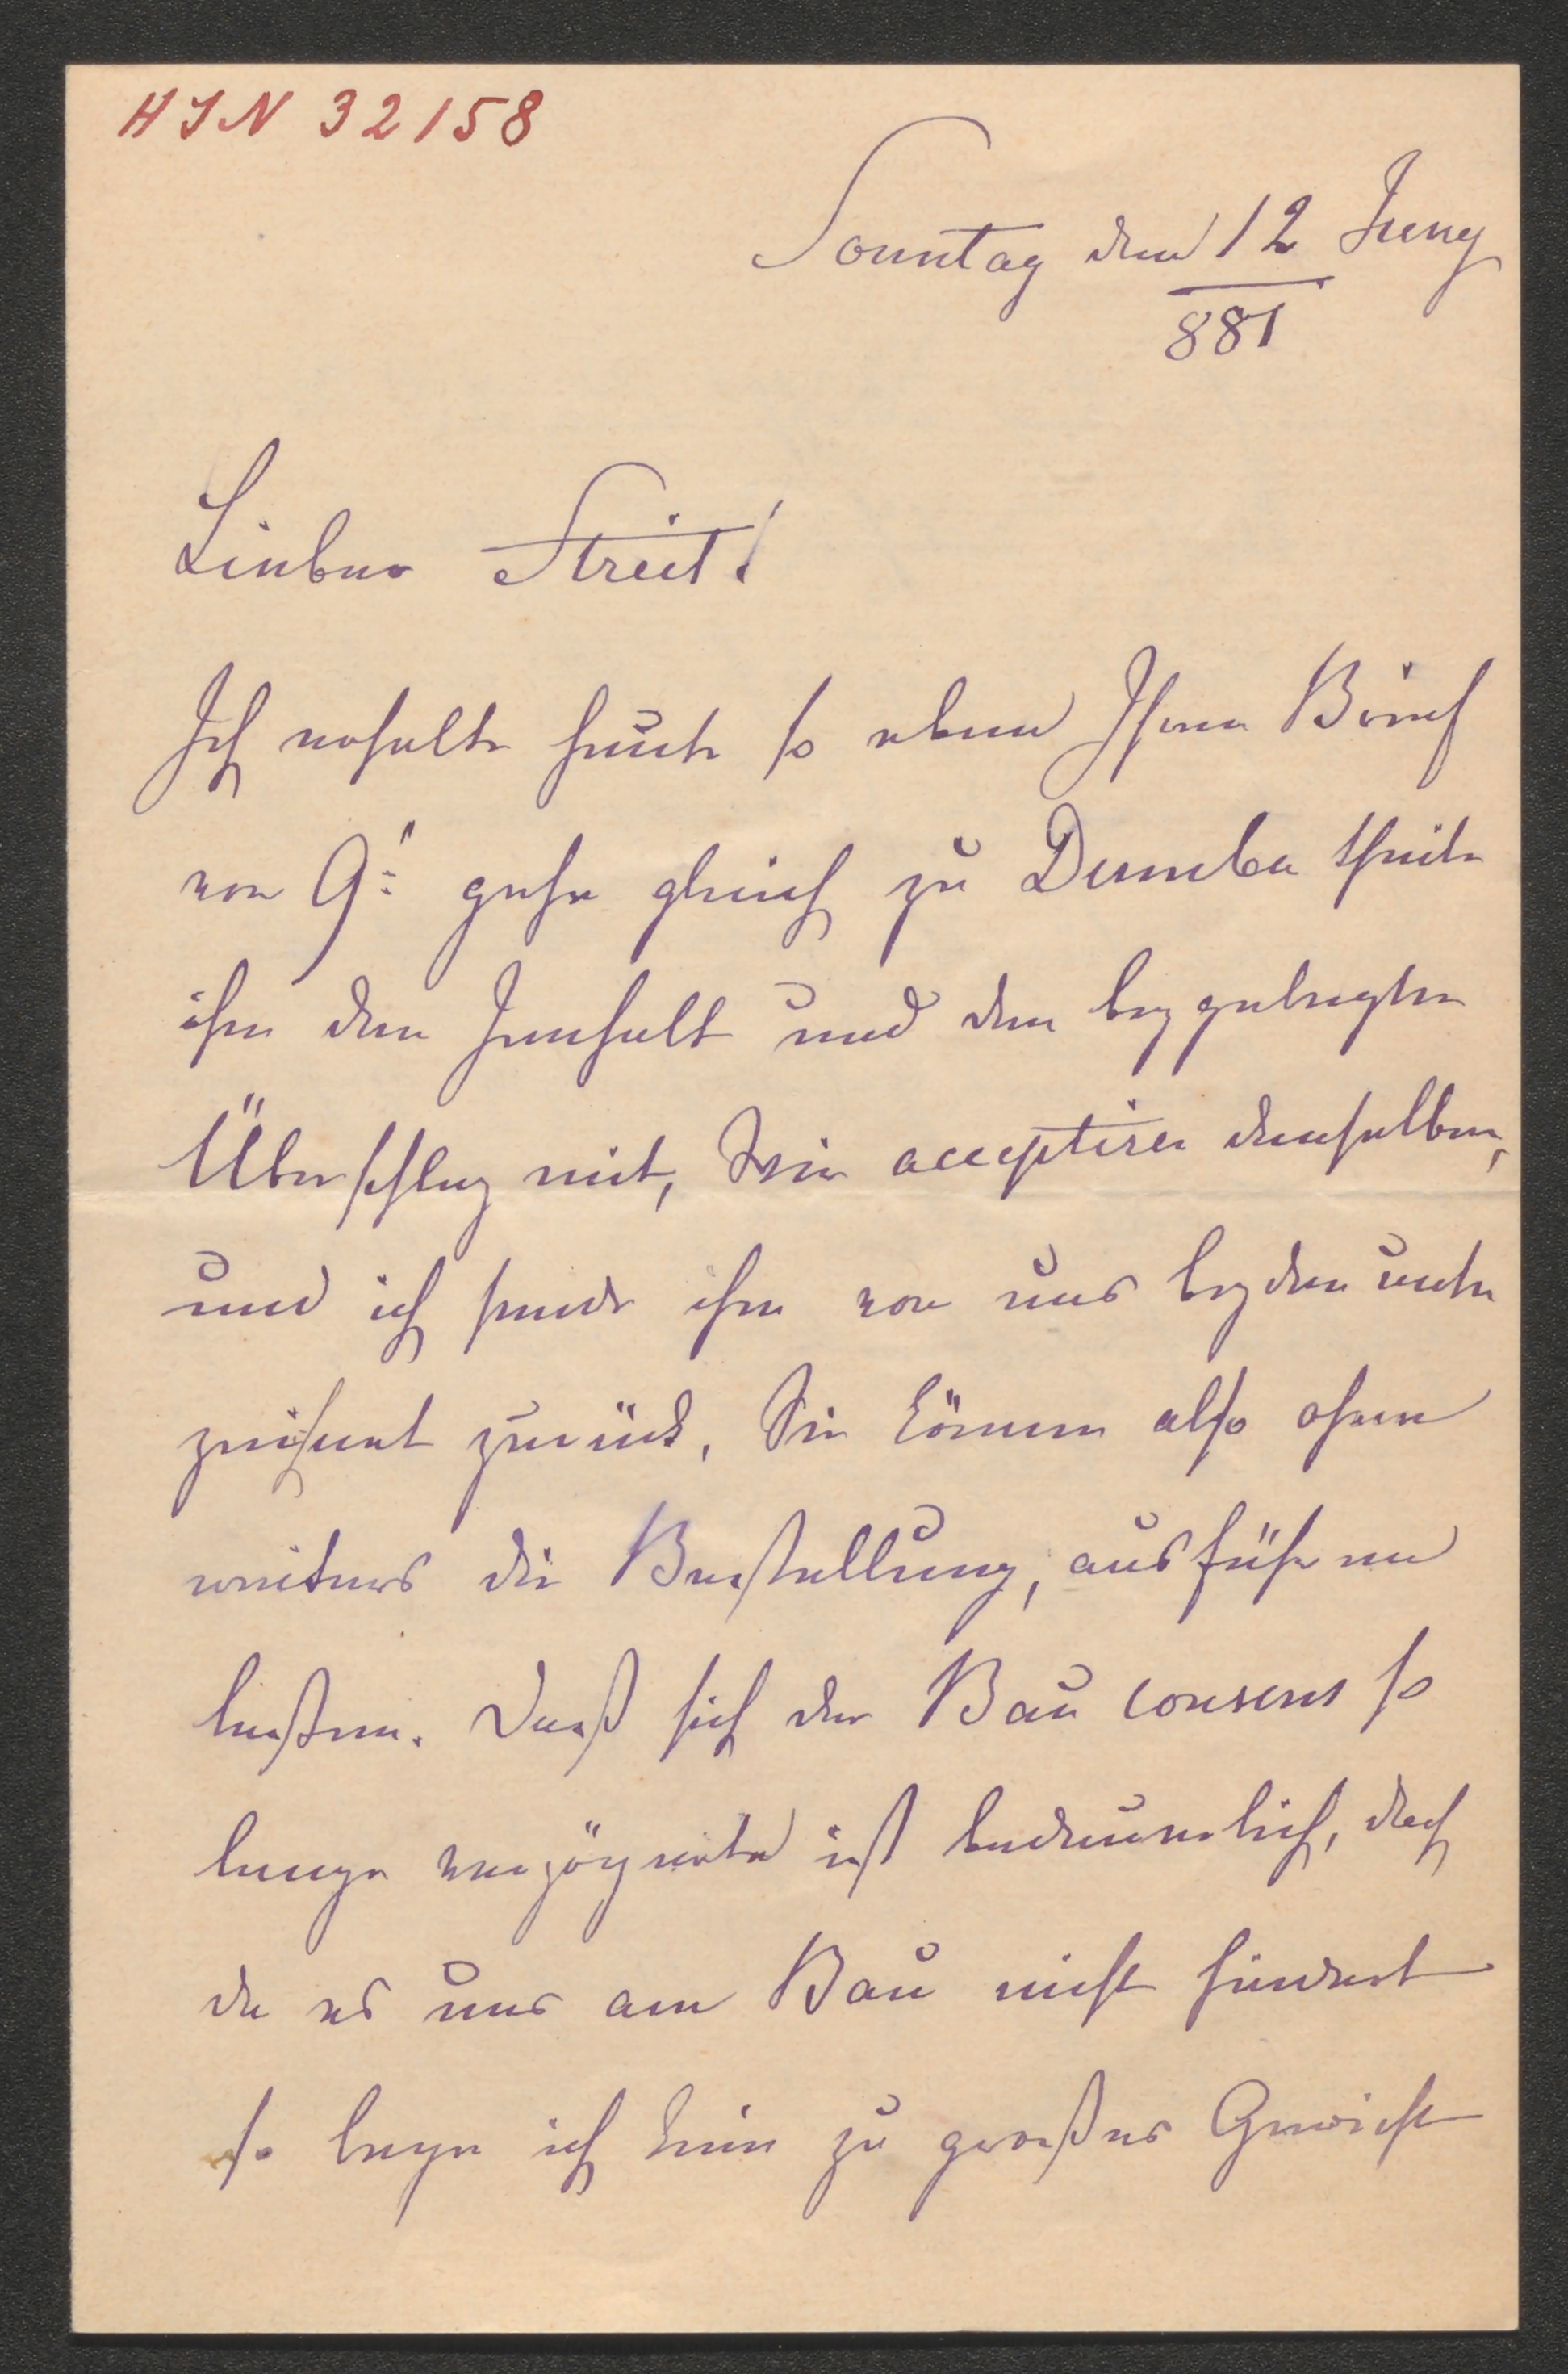 HIN 32158
Sonntag den 12 Juny
881
Lieber Streit!
Ich erhalte heute so eben Ihren Brief
von 9t: gehe gleich zu Dumba theile
ihm den Innhalt und den beygelegten
Überschlag mit, Wir acceptiren denselben,
und ich sende ihn von uns beyden unter
zeichnet zurück, Sie können also ohne
weiters die Bestellung, ausführen
laßen. Daß sich der Bau consens so
lange verzögerte ist bedauerlich, doch
da es uns am Bau nicht hindert
so lege ich kein zu großes Gewicht